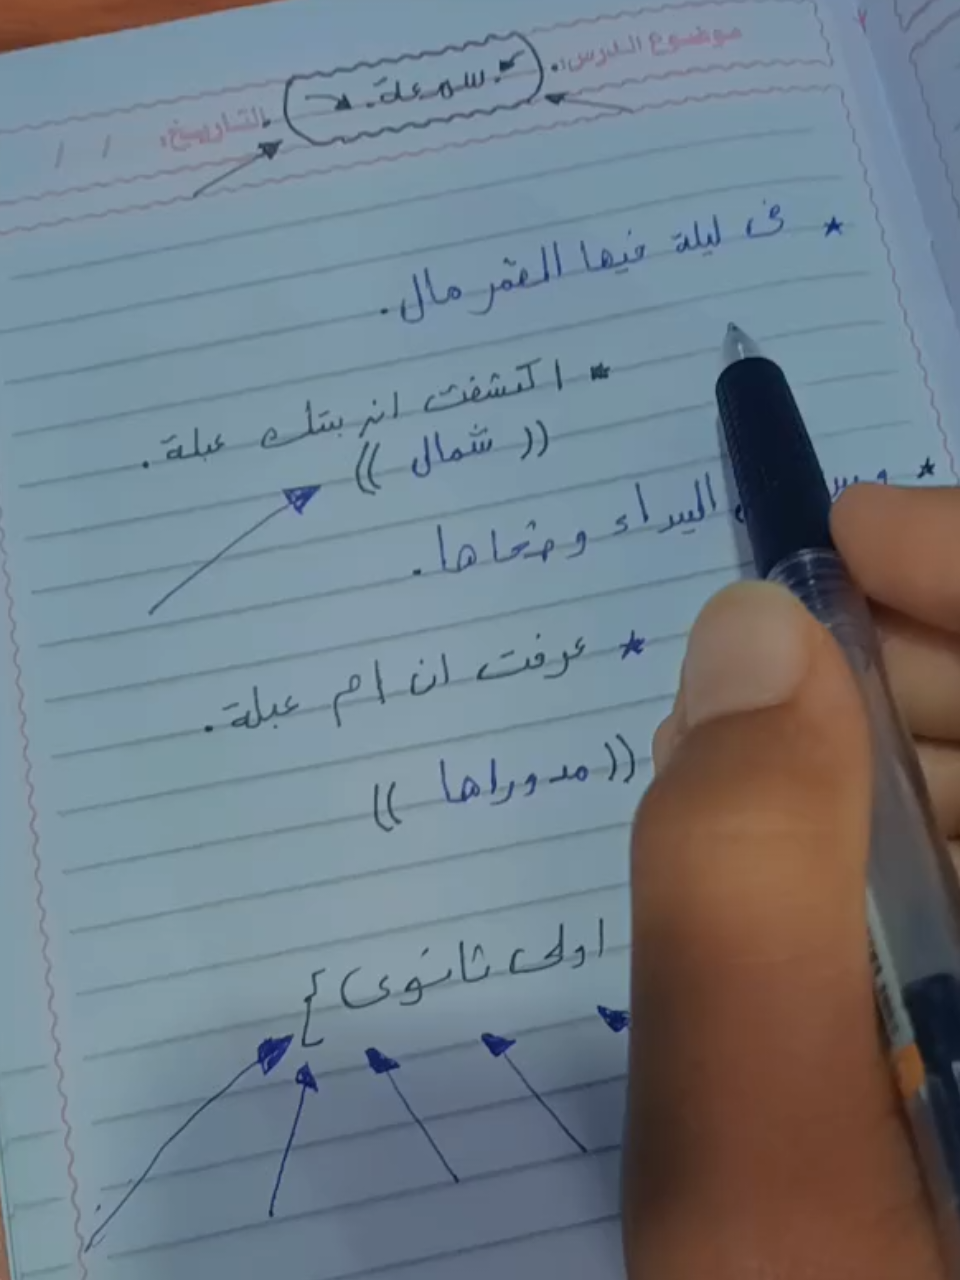 موضوع الدرس:
سمعة
التاريخ: / /
فى ليلة فيها القمر مال.
اكتشفت ان بنتك عبلة.
(( شمال ))
البيداء وضحاها.
عرفت ان ام عبلة.
(( مدوراها ))
اولى ثانوى]